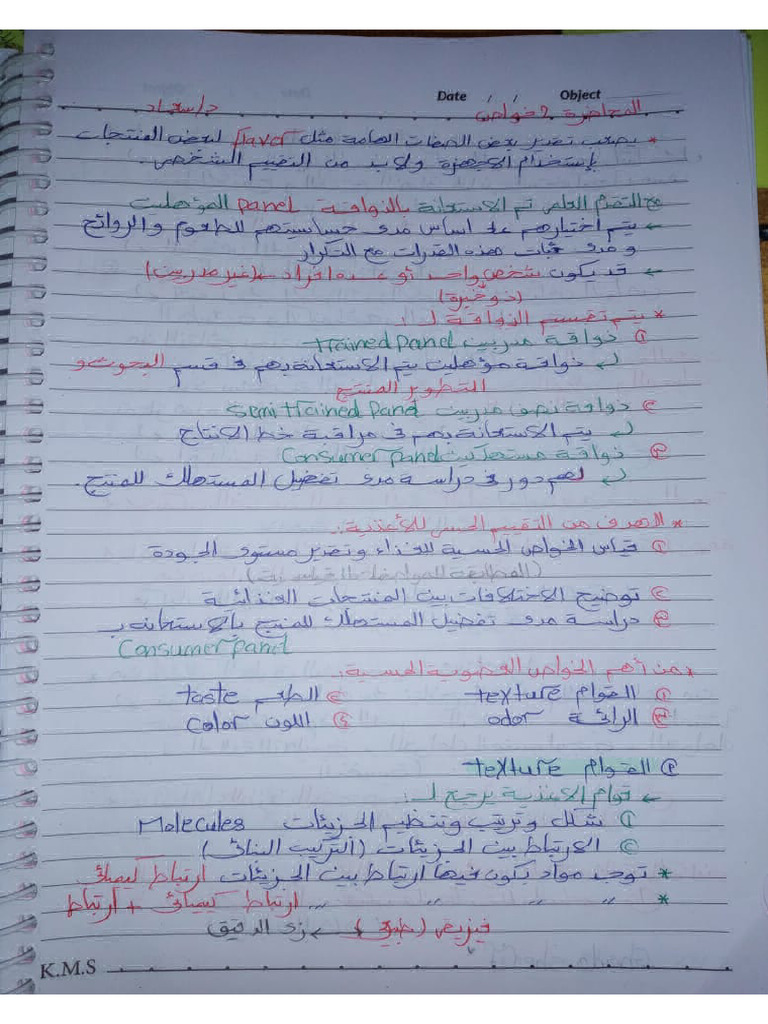 Date / / Object
المحاضرة 2 خواص د/سعاد
* يصعب تقدير بعض الصفات الهامة مثل flavor لبعض المنتجات
بإستخدام الاجهزة ولابد من التقييم الشخصي.
مع التقدم العلمي تم الاستعانة بالذواقة panel المؤهلين
← يتم اختيارهم على اساس مدى حساسيتهم للطعوم والروائح
ومدى ثبات هذه القدرات مع التكرار
← قد يكون شخص واحد أو عدة افراد (غير مدربين)
(ذو خبرة)
* يتم تقسيم الذواقة لـ :
① ذواقة مدربين Trained Panel
ذواقة مؤهلين يتم الاستعانة بهم فى قسم البحوث و
التطوير المنتج
② ذواقة نصف مدربين Semi trained Panel
يتم الاستعانة بهم فى مراقبة خط الانتاج
③ ذواقة مستهلكين Consumer panel
لهم دور فى دراسة مدى تفضيل المستهلك للمنتج.
* الهدف من التقييم الحسي للأغذية:
① قياس الخواص الحسية للغذاء وتقدير مستوى الجودة
(المطابقة للمواصفات القياسية).
② توضيح الاختلافات بين المنتجات الغذائية
③ دراسة مدى تفضيل المستهلك للمنتج بالاستعانه بـ
Consumer panel
* من أهم الخواص العضوية الحسية:
① القوام texture ② الطعم taste
③ الرائحة odor ④ اللون Color
① القوام texture
← قوام الاغذية يرجع لـ :
① شكل وترتيب وتنظيم الجزيئات Molecules
② الارتباط بين الجزيئات (التركيب البنائي)
* توجد مواد يكون فيها ارتباط بين الجزيئات ارتباط كيميائي
* " " " " ,, ارتباط كيميائي + ارتباط
فيزيائي (طبيعي) ← زى الدقيق
K.M.S